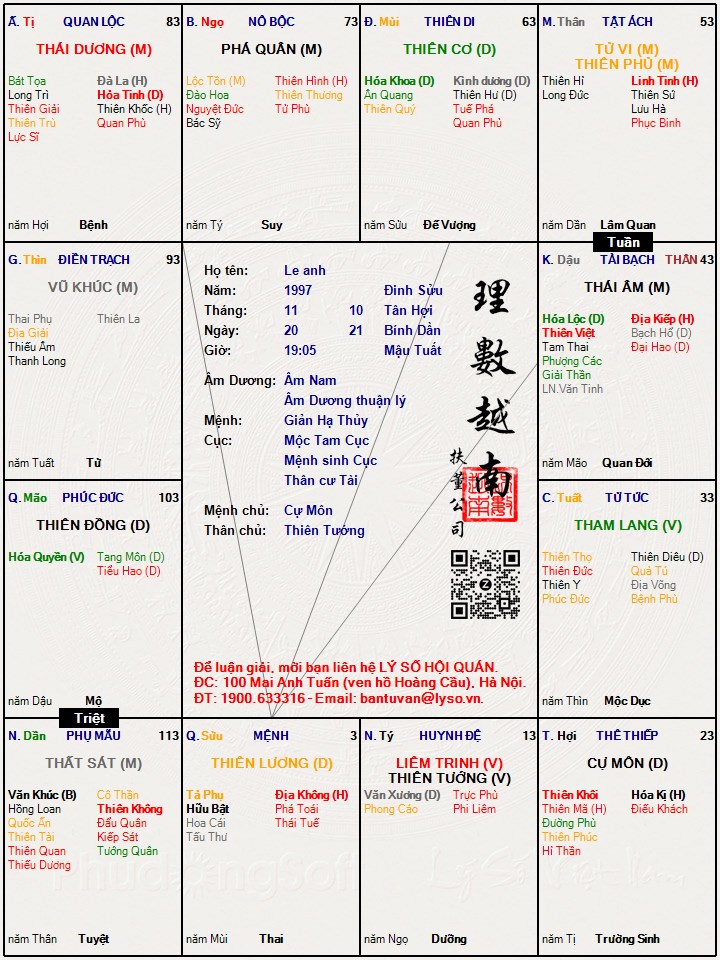 Ấ. Tị QUAN LỘC 83
THÁI DƯƠNG (M)
Bát Tọa Đà La (H)
Long Trì Hỏa Tinh (D)
Thiên Giải Thiên Khốc (H)
Thiên Trù Quan Phù
Lực Sĩ
năm Hợi Bệnh
B. Ngọ NÔ BỘC 73
PHÁ QUÂN (M)
Lộc Tồn (M) Thiên Hình (H)
Đào Hoa Thiên Thương
Nguyệt Đức Tử Phù
Bác Sỹ
năm Tý Suy
Đ. Mùi THIÊN DI 63
THIÊN CƠ (D)
Hóa Khoa (D) Kình dương (D)
Ân Quang Thiên Hư (D)
Thiên Quý Tuế Phá
Quan Phủ
năm Sửu Đế Vượng
M. Thân TẬT ÁCH 53
TỬ VI (M)
THIÊN PHỦ (M)
Thiên Hỉ Linh Tinh (H)
Long Đức Thiên Sứ
Lưu Hà
Phục Binh
năm Dần Lâm Quan
Tuần
G. Thìn ĐIỀN TRẠCH 93
VŨ KHÚC (M)
Thai Phụ Thiên La
Địa Giải
Thiếu Âm
Thanh Long
năm Tuất Tử
Họ tên: Le anh
Năm: 1997 Đinh Sửu
Tháng: 11 10 Tân Hợi
Ngày: 20 21 Bính Dần
Giờ: 19:05 Mậu Tuất
Âm Dương: Âm Nam
Âm Dương thuận lý
Mệnh: Giản Hạ Thủy
Cục: Mộc Tam Cục
Mệnh sinh Cục
Thân cư Tài
Mệnh chủ: Cự Môn
Thân chủ: Thiên Tướng
理數越南
扶董公司
Để luận giải, mời bạn liên hệ LÝ SỐ HỘI QUÁN.
ĐC: 100 Mai Anh Tuấn (ven hồ Hoàng Cầu), Hà Nội.
ĐT: 1900.633316 - Email: bantuvan@lyso.vn.
K. Dậu TÀI BẠCH THÂN 43
THÁI ÂM (M)
Hóa Lộc (D) Địa Kiếp (H)
Thiên Việt Bạch Hổ (D)
Tam Thai Đại Hao (D)
Phượng Các
Giải Thần
LN.Văn Tinh
năm Mão Quan Đới
Q. Mão PHÚC ĐỨC 103
THIÊN ĐỒNG (D)
Hóa Quyền (V) Tang Môn (D)
Tiểu Hao (D)
năm Dậu Mộ
Triệt
C. Tuất TỬ TỨC 33
THAM LANG (V)
Thiên Thọ Thiên Diêu (D)
Thiên Đức Quả Tú
Thiên Y Địa Võng
Phúc Đức Bệnh Phù
năm Thìn Mộc Dục
N. Dần PHỤ MẪU 113
THẤT SÁT (M)
Văn Khúc (B) Cô Thần
Hồng Loan Thiên Không
Quốc Ấn Đẩu Quân
Thiên Tài Kiếp Sát
Thiên Quan Tướng Quân
Thiếu Dương
năm Thân Tuyệt
Q. Sửu MỆNH 3
THIÊN LƯƠNG (D)
Tả Phụ Địa Không (H)
Hữu Bật Phá Toái
Hoa Cái Thái Tuế
Tấu Thư
năm Mùi Thai
N. Tý HUYNH ĐỆ 13
LIÊM TRINH (V)
THIÊN TƯỚNG (V)
Văn Xương (D) Trực Phù
Phong Cáo Phi Liêm
năm Ngọ Dưỡng
T. Hợi THÊ THIẾP 23
CỰ MÔN (D)
Thiên Khôi Hóa Kị (H)
Thiên Mã (H) Điếu Khách
Đường Phù
Thiên Phúc
Hỉ Thần
năm Tị Trường Sinh